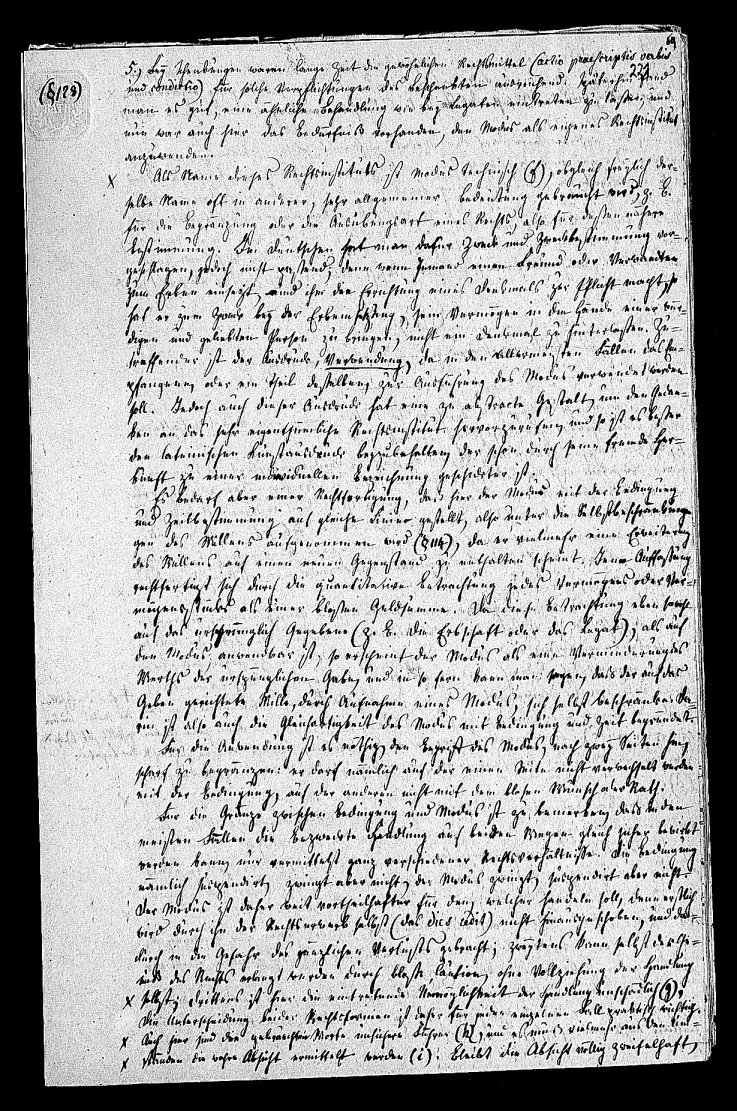 69
221
(§128)
5.) Bey Schenkungen waren lange Zeit die gewöhnlichen Rechtsmittel (actio praescriptis verbis
und condictio) für solche Verpflichtungen des Beschenkten ausreichend; späterhin fand
man es gut, eine ähnliche Behandlung wie bey Legaten eintreten zu lassen, und
nun war auch hier das Bedürfniß vorhanden, den Modus als eigenes Rechtsinstitut
anzuwenden.
x Als Name dieses Rechtsinstituts ist Modus technisch (f), obgleich freylich der-
selbe Name oft in anderer, sehr allgemeiner Bedeutung gebraucht wird, z. B.
für die Begränzung oder die Ausübungsart eines Rechts, also für dessen nähere
Bestimmung. Im Deutschen hat man dafür Zweck und Zweckbestimmung vor-
geschlagen, jedoch nicht passend, denn wenn Jemand einen Freund oder Verwandten
zum Erben einsetzt, und ihm die Errichtung eines Denkmals zur Pflicht macht, so
hat er zum Zweck bey der Erbeinsetzung, sein Vermögen in die Hände einer wür-
digen und geliebten Person zu bringen, nicht ein Denkmal zu hinterlassen. Zu-
treffender ist der Ausdruck Verwendung, da in den allermeisten Fällen das Em-
pfangene, oder ein Theil desselben, zur Ausführung des Modus verwendet werden
soll. Jedoch auch dieser Ausdruck hat eine zu abstracte Gestalt, um den Gedan-
ken an das sehr eigenthümliche Rechtsinstitut hervorzurufen, und so ist es besser
den lateinischen Kunstausdruck beyzubehalten, der schon durch seine fremde Her-
kunft zu einer individuellen Bezeichnung geschickter ist.
Es bedarf aber einer Rechtfertigung, daß hier der Modus mit der Bedingung
und Zeitbestimmung auf gleiche Linie gestellt, also unter die Selbstbeschränkun-
gen des Willens aufgenommen wird (§ 114), da er vielmehr eine Erweiterung
des Willens auf einen neuen Gegenstand zu enthalten scheint. Jene Auffassung
rechtfertigt sich durch die quantitative Betrachtung jedes Vermögens oder Ver-
mögensstücks als einer bloßen Geldsumme. Da diese Betrachtung eben sowohl
auf das ursprünglich Gegebene (z. B. die Erbschaft oder das Legat), als auf
den Modus, anwendbar ist, so erscheint der Modus als eine Verminderung des
Werths der ursprünglichen Gabe, und in so fern kann man sagen, daß der auf das
Geben gerichtete Wille, durch Aufnahme eines Modus, sich selbst beschränke. Da-
rin ist also auch die Gleichartigkeit des Modus mit Bedingung und Zeit begründet.
Für die Anwendung ist es nöthig, den Begriff des Modus nach zwey Seiten hin
scharf zu begränzen: er darf nämlich auf der einen Seite nicht verwechselt werden
mit der Bedingung, auf der anderen nicht mit dem bloßen Wunsch oder Rath.
Für die Gränze zwischen Bedingung und Modus ist zu bemerken, daß in den
meisten Fällen die bezweckte Handlung auf beiden Wegen gleich sicher bewirkt
werden kann, nur vermittelst ganz verschiedener Rechtsverhältnisse. Die Bedingung
nämlich suspendirt, zwingt aber nicht, der Modus zwingt, suspendirt aber nicht.
Der Modus ist daher weit vortheilhafter für den, welcher handeln soll, denn erstlich
wird durch ihn der Rechtserwerb selbst (das dies cedit) nicht hinausgeschoben, und da-
durch in die Gefahr des gänzlichen Verlusts gebracht; zweytens kann selbst der Ge-
nuß des Rechts erlangt werden durch bloße Caution, ohne Vollziehung der Handlung
x selbst; drittens ist hier die eintretende Unmöglichkeit der Handlung unschädlich (g).
Die Unterscheidung beider Rechtsformen ist daher für jeden einzelnen Fall praktisch wichtig.
x Auch hier sind die gebrauchten Worte unsichere Führer (h), und es muß vielmehr aus den Um-
x ständen die wahre Absicht ermittelt werden (i). Bleibt die Absicht völlig zweifelhaft,